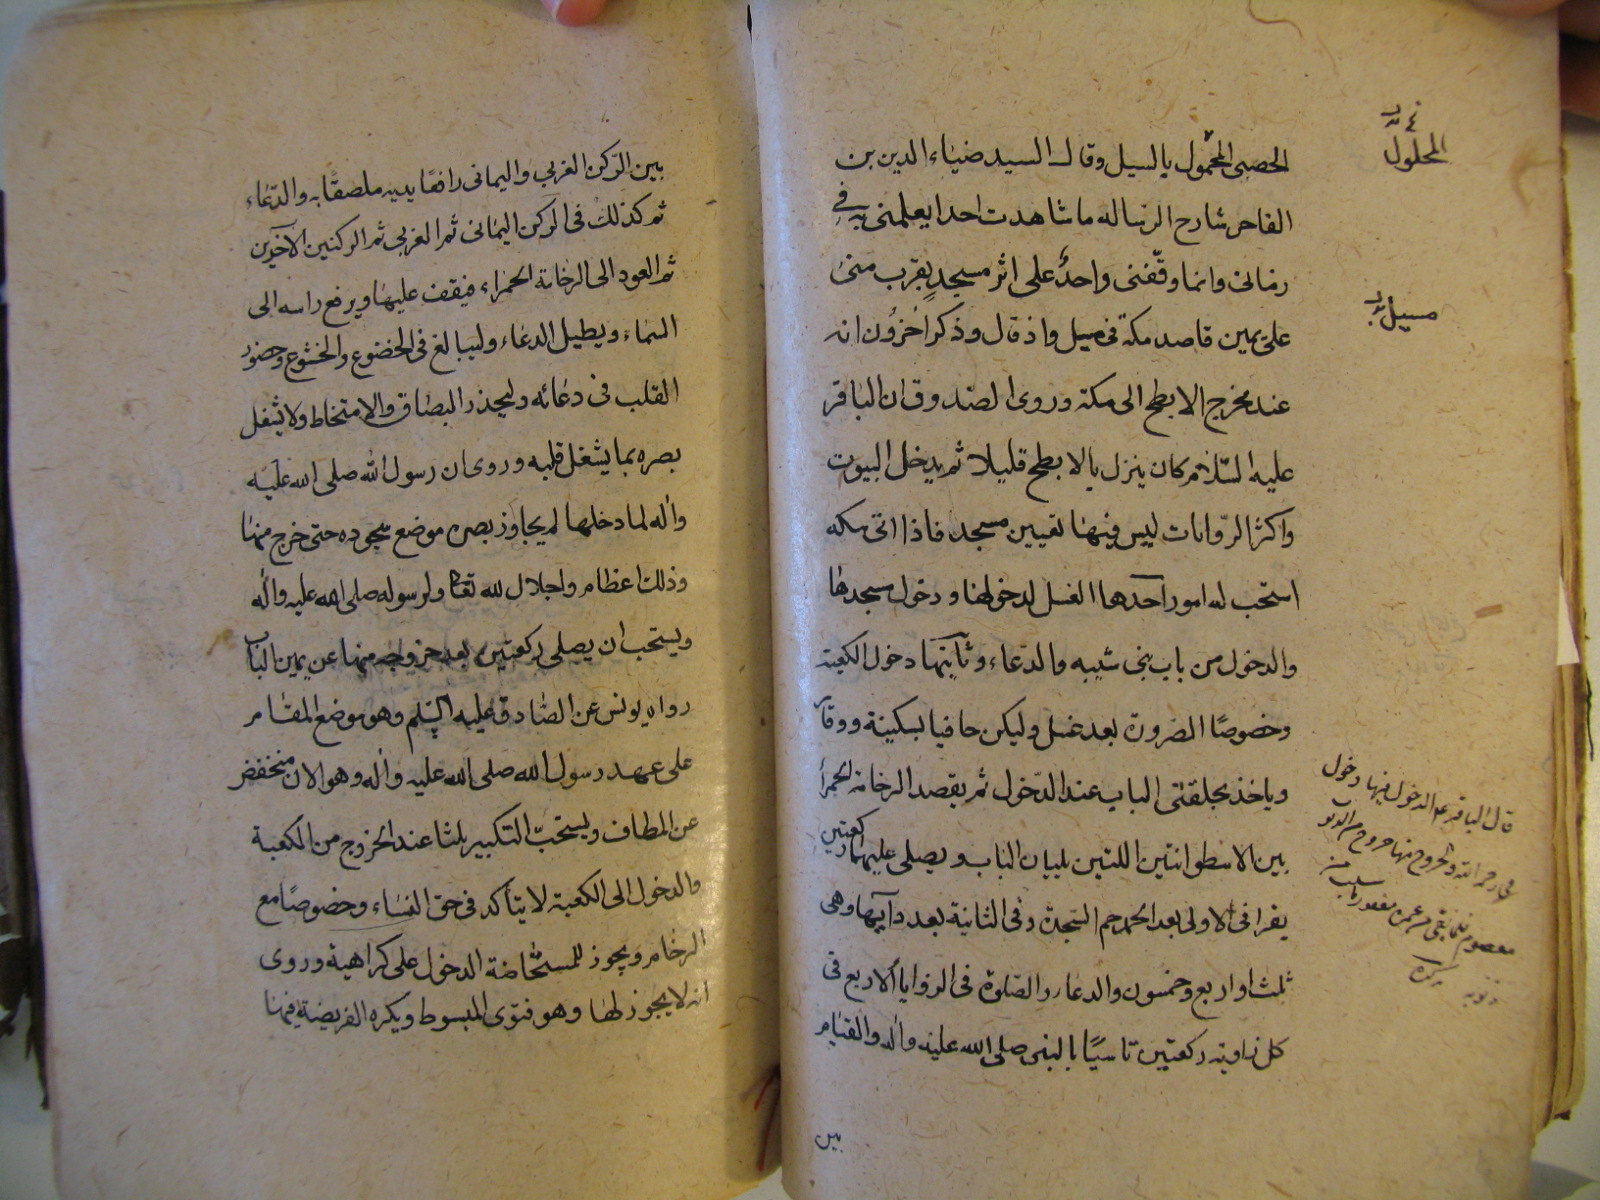 الحصبى المحمول بالسيل وقال السيد ضياء الدين بن
الفاخر شارح الرساله ما شاهدت احدا يعلمنى به في
زمانى وانما وقّفنى واحدٌ على اثر مسجدٍ بقرب منى
على يمين قاصد مكة فى مسيل واد قال وذكر اخرون انه
عند مخرج الابطح الى مكة وروى الصدوق ان الباقر
عليه السّلام كان ينزل بالابطح قليلا ثم يدخل البيوت
واكثر الرّوايات ليس فيها تعيين مسجد فاذا اتى مكه
استحب له امور احدها الغسل لدخولها ودخول مسجدها
والدخول من باب بنى شيبه والدّعاء وثانيها دخول الكعبة
وخصوصًا الصرورة بعد غسل وليكن حافيا بسكينة ووقار
وياخذ بحلقتى الباب عند الدّخول ثم يقصد الرخامة الحمرا
بين الاسطوانتين اللتين يليان الباب ويصلى عليها ركعتين
يقرا فى الاولى بعد الحمد حم السّجدة وفى الثانية بعدد آيها وهى
ثلث او اربع وخمسون والدعاء والصلوة فى الزوايا الاربع فى
كل زاوية ركعتين تاسيًا بالنبى صلى الله عليه واله والقيام
بين
المحلول
مسيل
قال الباقر ع الدخول فيها دخول
فى رحمة الله والخروج منها خروج من الذنوب
معصوم فيما بقى من عمره مغفور له ما سلف من
ذنوبه
بين الرّكن الغربي واليمانى رافعًا يديه ملصقًا به والدّعاء
ثم كذلك فى الركن اليمانى ثم الغربي ثم الركنين الآخرين
ثم العود الى الرخامة الحمراء فيقف عليها ويرفع راسه الى
السماء ويطيل الدعاء وليبالغ فى الخضوع والخشوع وحضور
القلب فى دعائه وليحذر البصاق والامتخاط ولا يشغل
بصره بما يشغل قلبه وروى ان رسول الله صلى الله عليه
واله لما دخلها لم يجاوز بصره موضع سجوده حتى خرج منها
وذلك اعظام واجلال لله تعا ولرسوله صلى الله عليه واله
ويستحب ان يصلى ركعتين بعد خروجه منها عن يمين الباب
رواه يونس عن الصّادق عليه السّلم وهو موضع المقام
على عهد رسول الله صلى الله عليه واله وهو الان منخفض
عن المطاف ويستحبّ التكبير ثلثا عند الخروج من الكعبة
والدخول الى الكعبة لا يتأكد فى حق النساء وخصوصًا مع
الزخام ويجوز للمستحاضة الدخول على كراهية وروى
انه لا يجوز لها وهو فتوى المبسوط ويكره الفريضة فيها